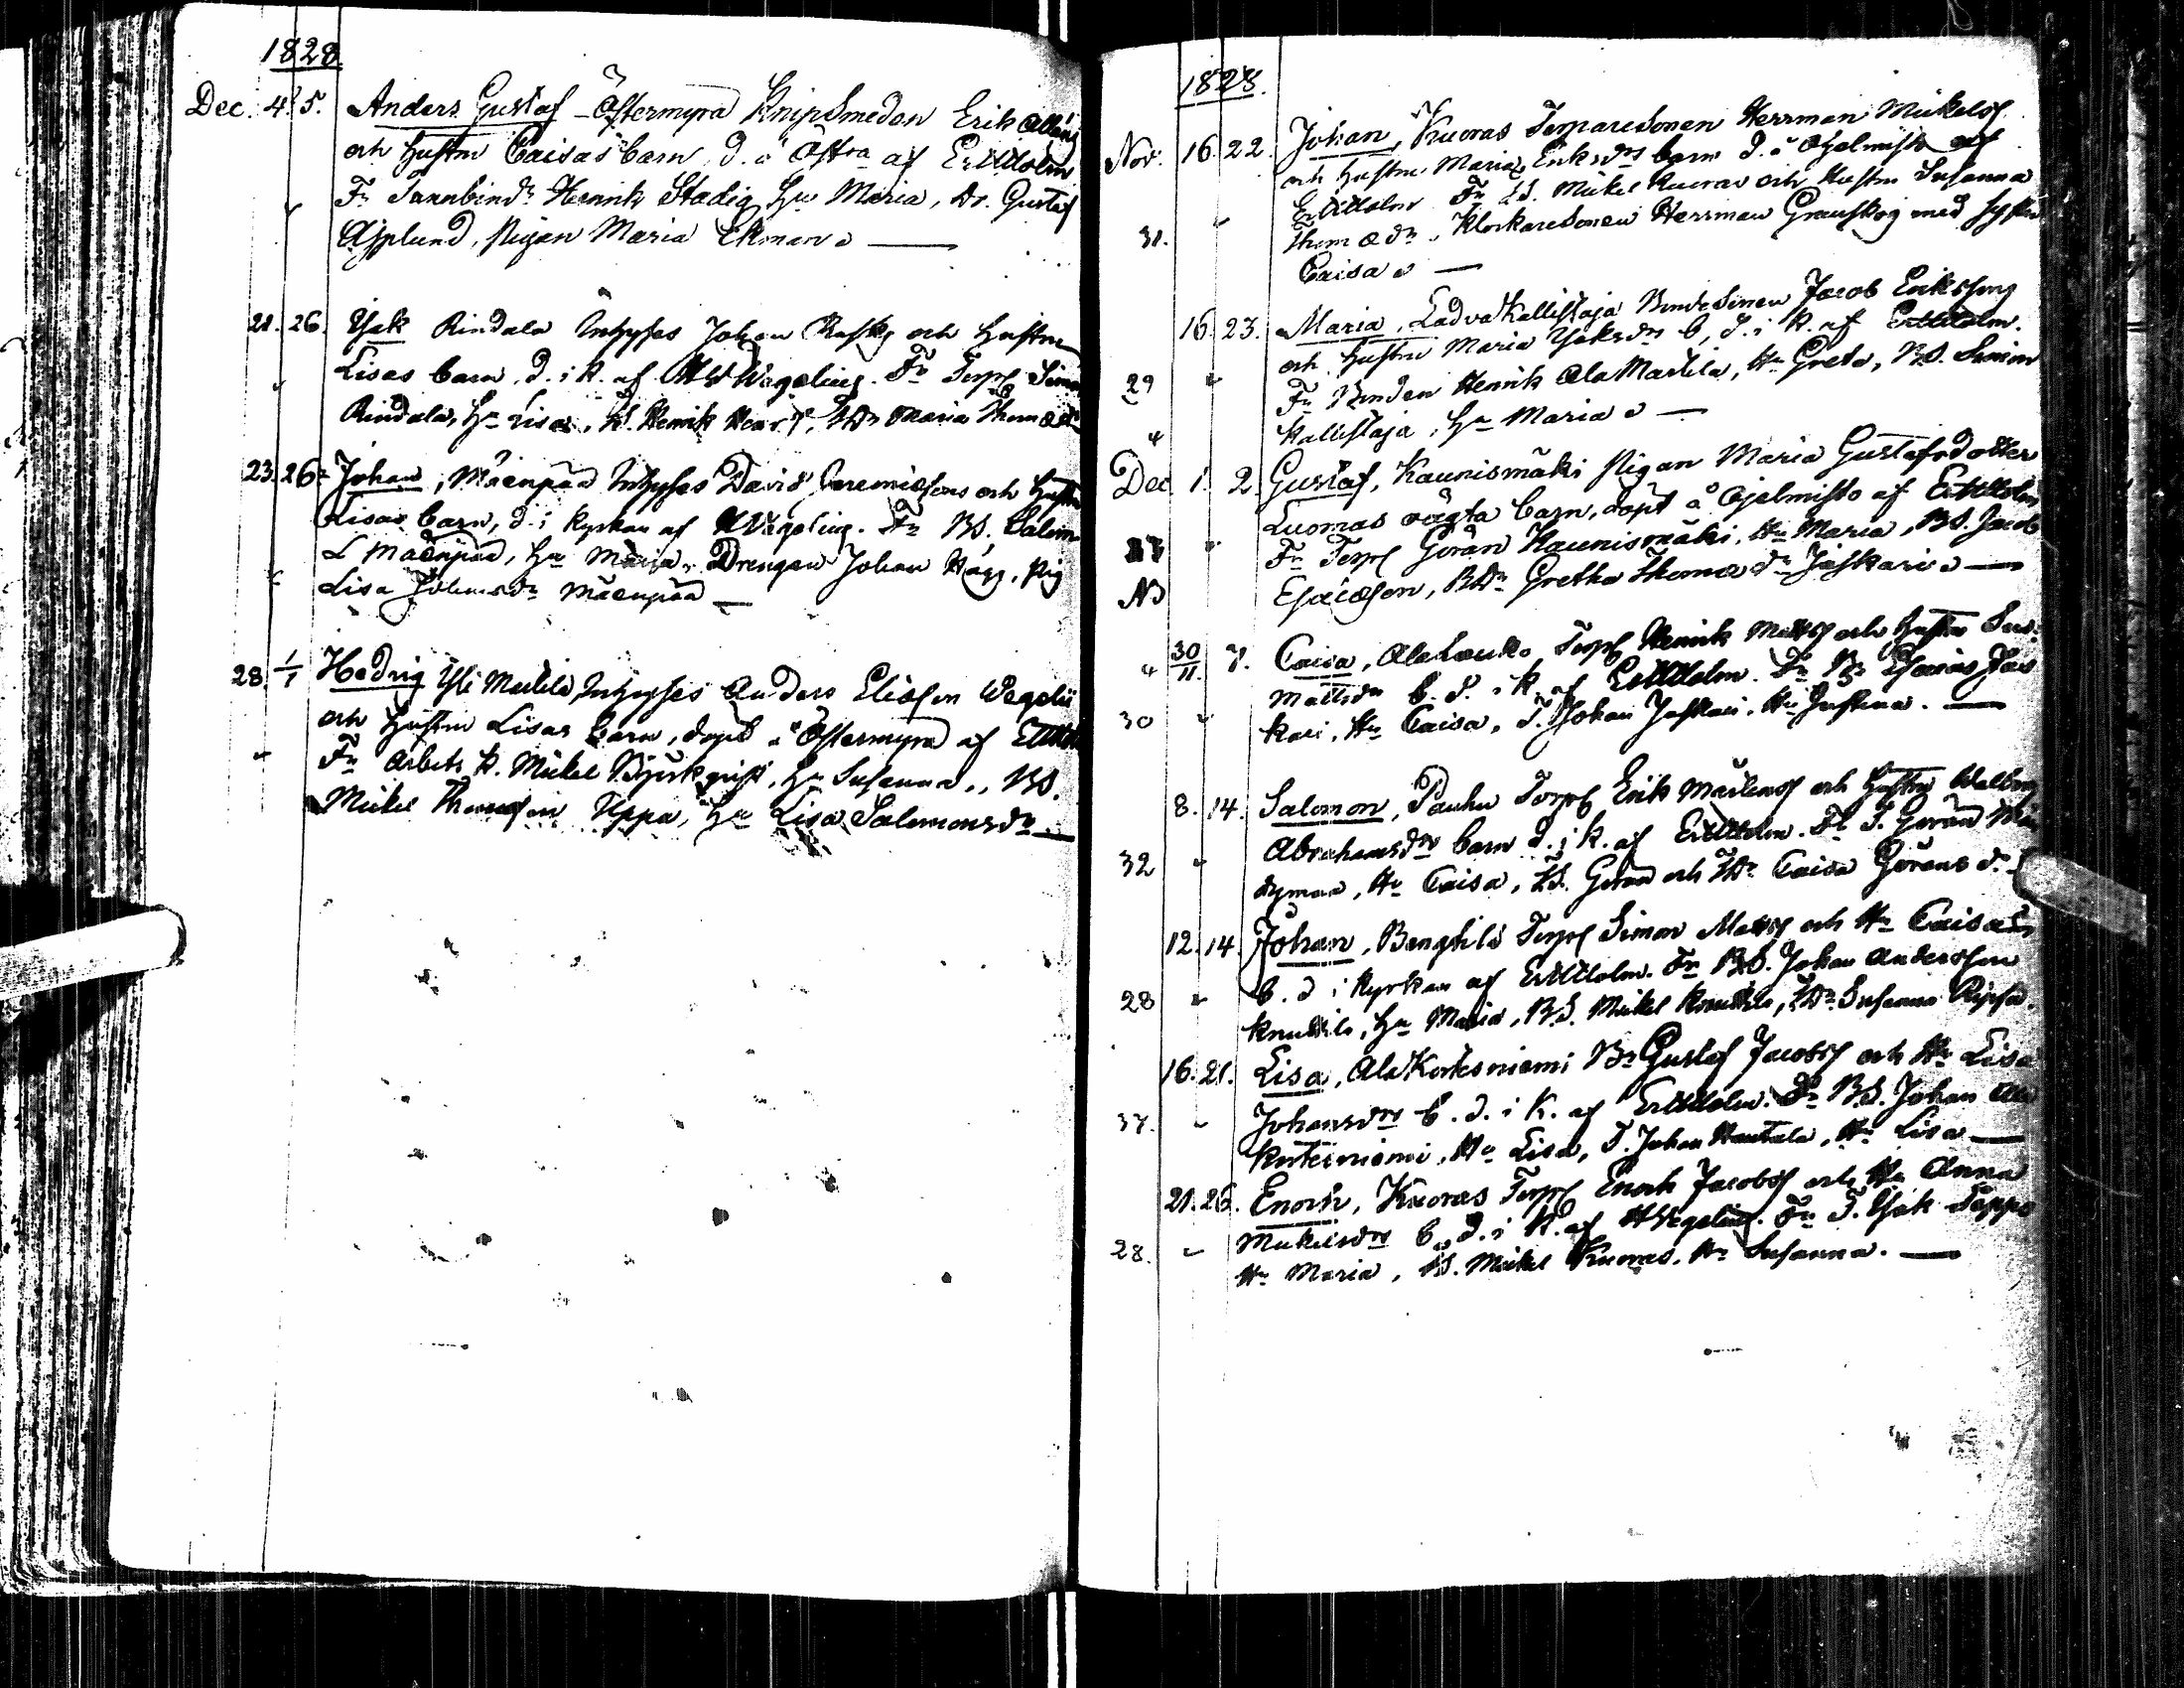 1828.
Dec. 4. 5. Anders Gustaf Östermyra Knipsmeden Erik
och Hustru Caisas barn, d. å Östra af ErWholm
Fr Tunnbind. Henrik Stadig, Hu Maria, Dr. Gustaf
Asplund, Pigan Maria Ekman
21. 26. Isak Rindala Inhyses Johan Rask och Hustru
Lisas barn, d. i K. af Wegelius. Fr Torp Simon
Rindala, Hu Lisa, Henrik Maria Thomædr
23. 26. Johan, Mäenpää Inhyses David Jeremiæsons och Hustru
Lisas barn, d. i kyrkan af Wegelius. Fr BS. Salom
Mäenpää, Hu Maria, Drengen Johan Hägg, Pig
Lisa Johansdr Mäenpää
28. 1/1 Hedvig Yli Markila Inhyses Anders Eliæson Wegelii
och Hustru Lisas barn, döpt å Östermyra af
Fr Arbets k. Mickel Björkqvist, Hu Susanna, BS.
Mickel Thomæson Uppa, Hu Lisa Salomonsdr
1828.
Nov. 16. 22. Johan, Kuoras Torparesonen Herrman Mickelss
och Hustru Maria Eriksdrs barn d. å Hjelmisto af
ErWholm Fr Mickel Kuoras och Hustru Susanna
31. Thomædr, Klockaresonen Herrman Granskog med syster
Caisa
16. 23. Maria, Ladvakallistaja Bondesonen Jacob Erikssons
och Hustru Maria Isaksdrs b, d. i K. af ErWholm.
29 Fr Bonden Henrik Ala Markila, Hu Greta, BS. Simon
Kallistaja, Hu Maria
Dec. 1. 2. Gustaf, Kaunismäki Pigan Maria Gustafsdotter
Luomas oägta barn, döpt å Hjelmisto af ErWholm,
27 Fr Torp Göran Kaunismäki, Hu Maria, BS. Jacob
NB Esaiæson, BDr Gretha Thomædr Jaskari
30/11 7. Caisa, Alalauko Torp Henrik Mattss och Hustru Sus.
Mattsdr b. d. i K. af ErWholm. Fr Br Esaias Jas
30 kari, Hu Caisa, T. Johan Jaskari, Hu Justina.
8. 14. Salomon, Pauhu Torp Erik Mårtenss och Hustru Walborg
Abrahamsdrs barn d. i K. af ErWholm. Fr T. Göran
32 Hu Caisa, Göran och Caisa Göransdr
12. 14. Johan, Bengtila Torp Simon Matss och Hu Caisas
b. d i Kyrkan af ErWholm. Fr BS. Johan Andersson
28 Knuttila, Hu Maria, BS. Mickel Knuttila, Susanna
16. 21. Lisa, Ala Kortesniemi Br Gustaf Jacobss och Hu Lisa
37. Johansdrs b. d. i K. af ErWholm. Fr BS. Johan Ala
Kortesniemi, Hu Lisa, T. Johan Hautala, Hu Lisa
21. 26. Enoch, Kuoras Torp Enoch Jacobss och Hu Anna
Mickelsdrs b. d. i K. af Wegelius. Fr T. Isak Seppä
28. Hu Maria, Mickel Kuoras, Hu Susanna.